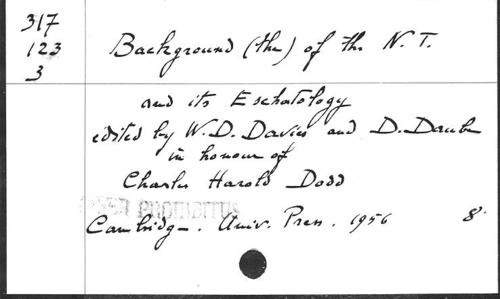 317
123
3
Background (the) of the N.T.
and its Eschatology
edited by W.D. Davies and D. Daube
in honour of
Charles Harold Dodd
PROHIBITUS
Cambridge. Univ. Press. 1956 8°